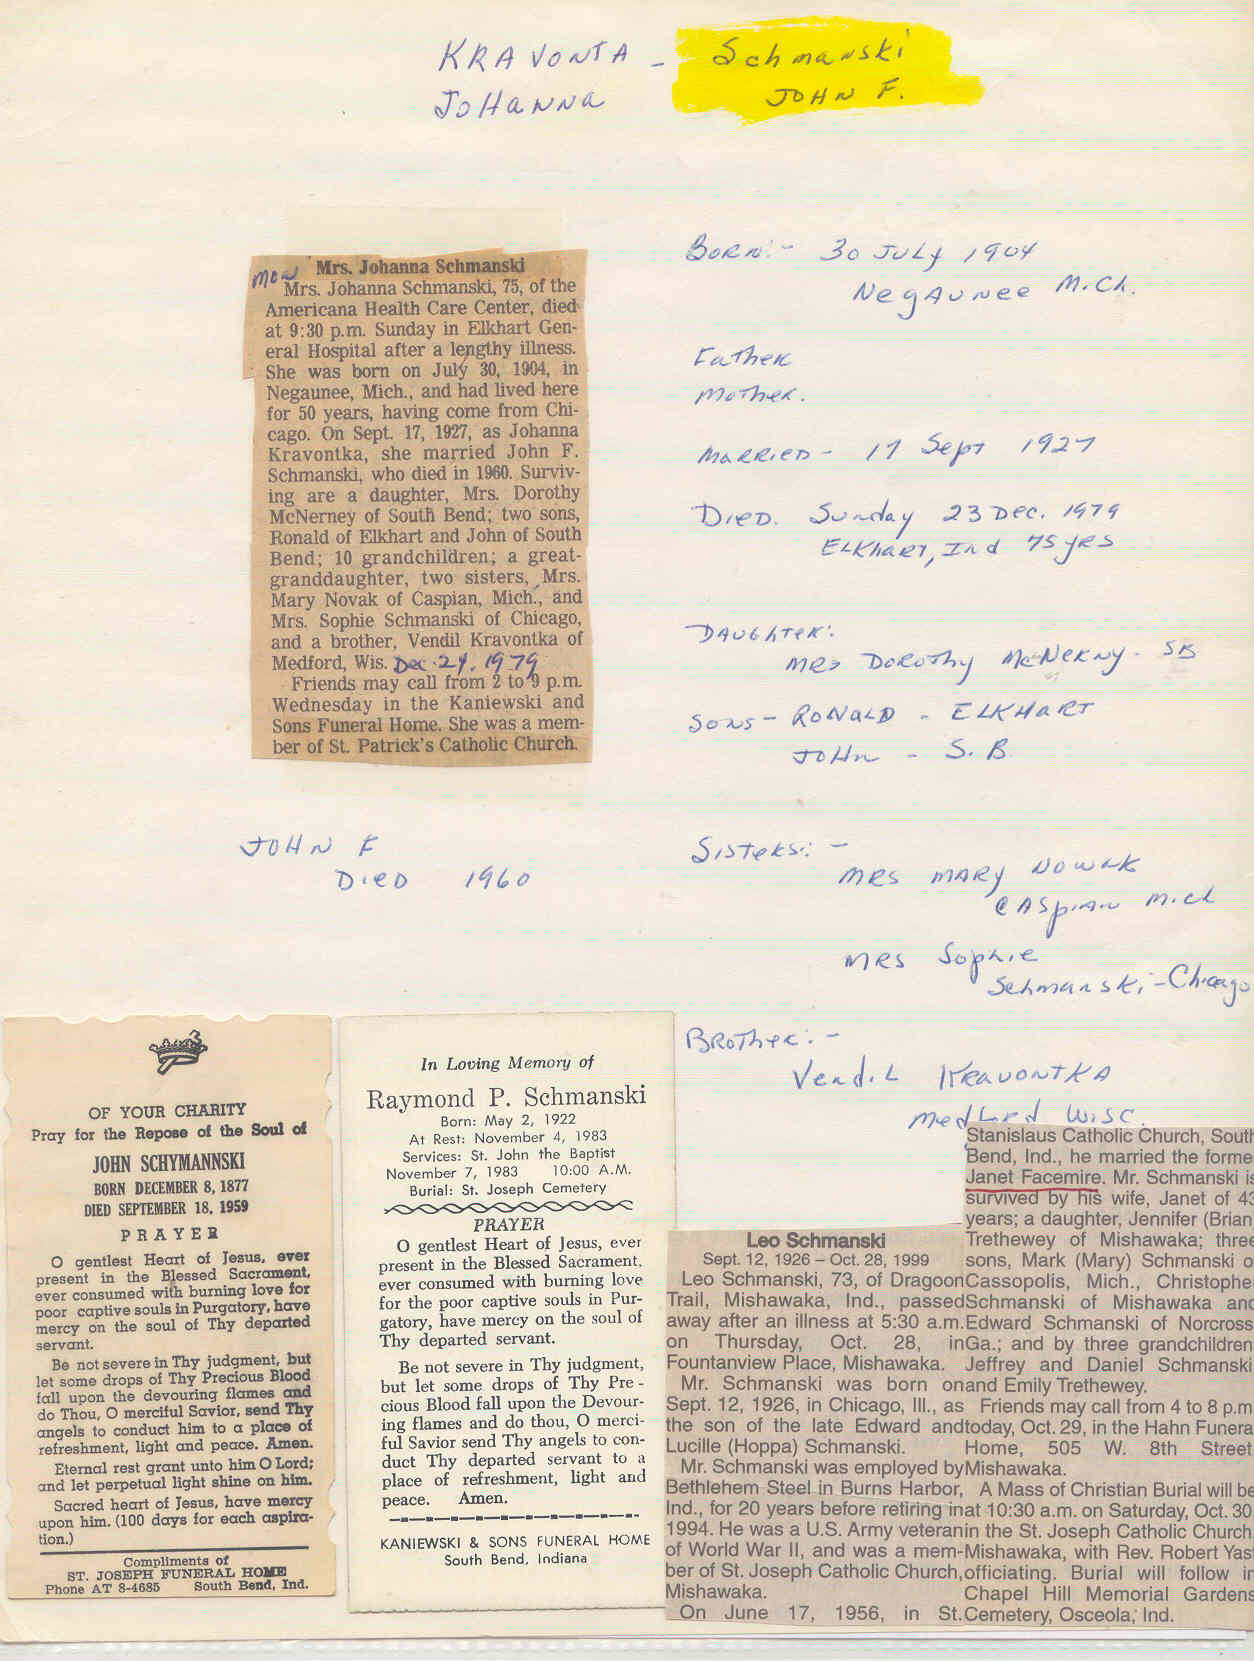 KRAVONTA - Schmanski
JOHANNA JOHN F.
mon Mrs. Johanna Schmanski
Mrs. Johanna Schmanski, 75, of the
Americana Health Care Center, died
at 9:30 p.m. Sunday in Elkhart Gen-
eral Hospital after a lengthy illness.
She was born on July 30, 1904, in
Negaunee, Mich., and had lived here
for 50 years, having come from Chi-
cago. On Sept. 17, 1927, as Johanna
Kravontka, she married John F.
Schmanski, who died in 1960. Surviv-
ing are a daughter, Mrs. Dorothy
McNerney of South Bend; two sons,
Ronald of Elkhart and John of South
Bend; 10 grandchildren; a great-
granddaughter, two sisters, Mrs.
Mary Novak of Caspian, Mich., and
Mrs. Sophie Schmanski of Chicago,
and a brother, Vendil Kravontka of
Medford, Wis. Dec. 24, 1979
Friends may call from 2 to 9 p.m.
Wednesday in the Kaniewski and
Sons Funeral Home. She was a mem-
ber of St. Patrick's Catholic Church.
BORN:- 30 JULY 1904
NEGAUNEE Mich.
Father
Mother.
MARRIED- 17 Sept 1927
DIED. Sunday 23 Dec. 1979
ELKhart, Ind 75 yrs
DAUGHTER:
MRS DOROTHY McNERNY. SB
SONS- RONALD - ELKHART
JOHN - S.B.
JOHN F
DIED 1960
SISTERS:-
MRS MARY NOWAK
CASPIAN Mich
MRS Sophie
Schmanski-Chicago
BROTHER:-
Vendil KRAVONTKA
Medford WISC.
OF YOUR CHARITY
Pray for the Repose of the Soul of
JOHN SCHYMANNSKI
BORN DECEMBER 8, 1877
DIED SEPTEMBER 18, 1959
PRAYER
O gentlest Heart of Jesus, ever
present in the Blessed Sacrament,
ever consumed with burning love for
poor captive souls in Purgatory, have
mercy on the soul of Thy departed
servant.
Be not severe in Thy judgment, but
let some drops of Thy Precious Blood
fall upon the devouring flames and
do Thou, O merciful Savior, send Thy
angels to conduct him to a place of
refreshment, light and peace. Amen.
Eternal rest grant unto him O Lord;
and let perpetual light shine on him.
Sacred heart of Jesus, have mercy
upon him. (100 days for each aspira-
tion.)
Compliments of
ST. JOSEPH FUNERAL HOME
Phone AT 8-4685 South Bend, Ind.
In Loving Memory of
Raymond P. Schmanski
Born: May 2, 1922
At Rest: November 4, 1983
Services: St. John the Baptist
November 7, 1983 10:00 A.M.
Burial: St. Joseph Cemetery
PRAYER
O gentlest Heart of Jesus, ever
present in the Blessed Sacrament,
ever consumed with burning love
for the poor captive souls in Pur-
gatory, have mercy on the soul of
Thy departed servant.
Be not severe in Thy judgment,
but let some drops of Thy Pre -
cious Blood fall upon the Devour-
ing flames and do thou, O merci-
ful Savior send Thy angels to con-
duct Thy departed servant to a
place of refreshment, light and
peace. Amen.
KANIEWSKI & SONS FUNERAL HOME
South Bend, Indiana
Leo Schmanski
Sept. 12, 1926 – Oct. 28, 1999
Leo Schmanski, 73, of Dragoon
Trail, Mishawaka, Ind., passed
away after an illness at 5:30 a.m.
on Thursday, Oct. 28, in
Fountanview Place, Mishawaka.
Mr. Schmanski was born on
Sept. 12, 1926, in Chicago, Ill., as
the son of the late Edward and
Lucille (Hoppa) Schmanski.
Mr. Schmanski was employed by
Bethlehem Steel in Burns Harbor,
Ind., for 20 years before retiring in
1994. He was a U.S. Army veteran
of World War II, and was a mem-
ber of St. Joseph Catholic Church,
Mishawaka.
On June 17, 1956, in St.
Stanislaus Catholic Church, South
Bend, Ind., he married the forme
Janet Facemire. Mr. Schmanski is
survived by his wife, Janet of 43
years; a daughter, Jennifer (Brian)
Trethewey of Mishawaka; three
sons, Mark (Mary) Schmanski o
Cassopolis, Mich., Christophe
Schmanski of Mishawaka and
Edward Schmanski of Norcross
Ga.; and by three grandchildren
Jeffrey and Daniel Schmanski
and Emily Trethewey.
Friends may call from 4 to 8 p.m
today, Oct. 29, in the Hahn Funera
Home, 505 W. 8th Street
Mishawaka.
A Mass of Christian Burial will be
at 10:30 a.m. on Saturday, Oct. 30
in the St. Joseph Catholic Church
Mishawaka, with Rev. Robert Yas
officiating. Burial will follow in
Chapel Hill Memorial Gardens
Cemetery, Osceola, Ind.